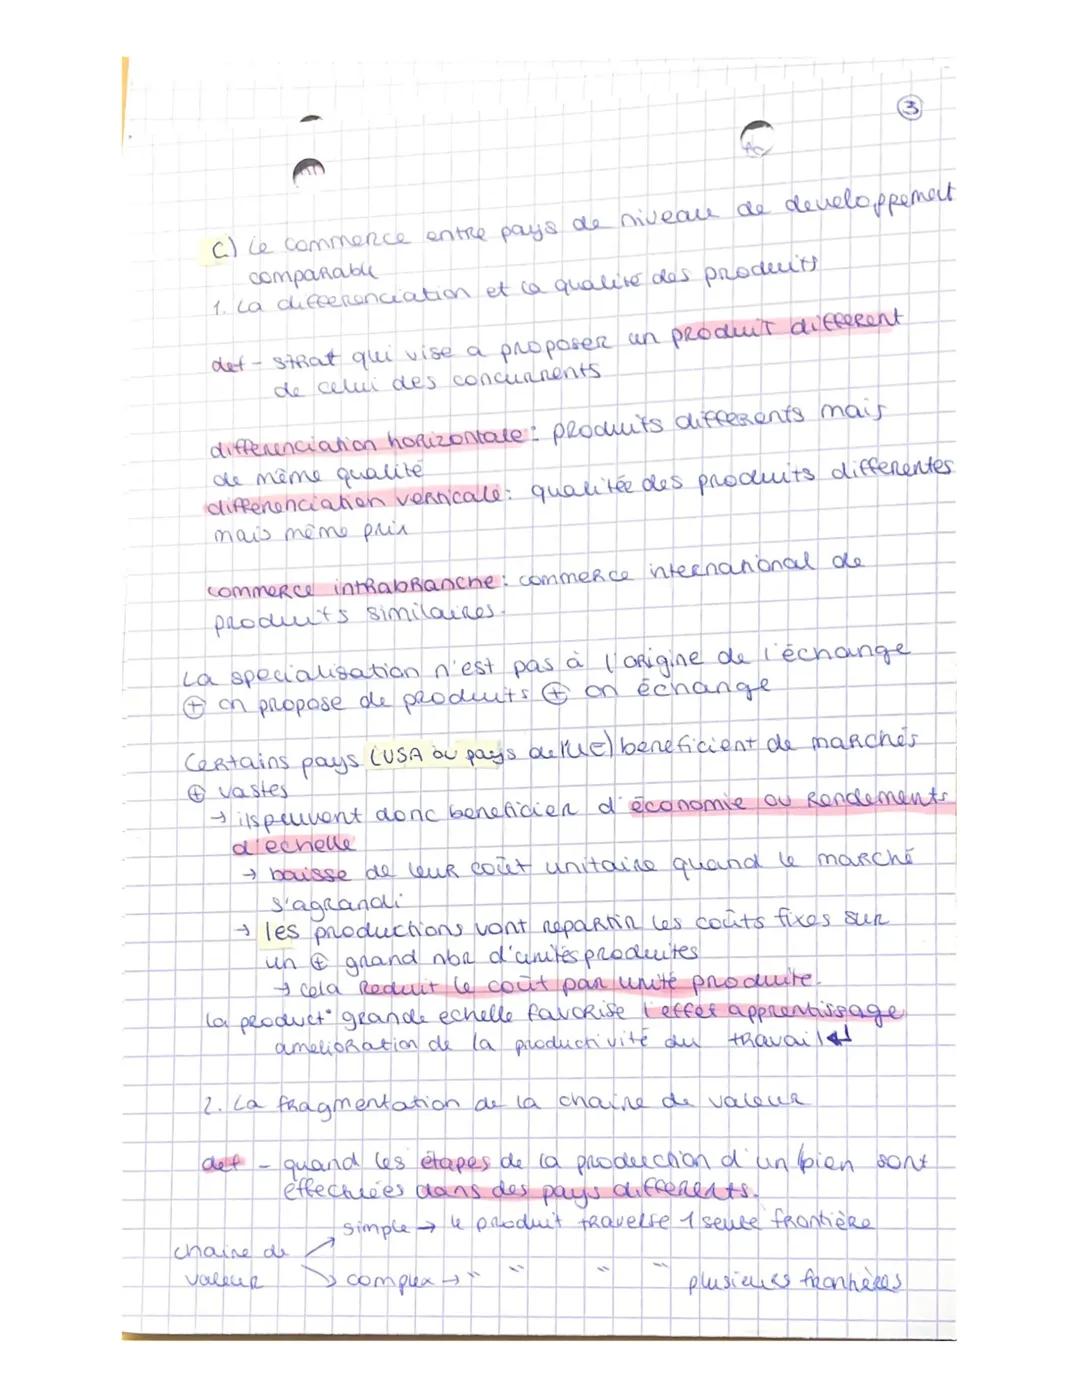 3
C) Le commerce entre pays de niveau de developpement
comparable
1. La differenciation et la qualité des produits
def - strat qui vise a proposer un produit different
de celui des concurrents
differenciation horizontale : produits differents mais
de même qualité
differenciation verticale : qualitée des produits differentes
mais même prix
commerce intrabranche : commerce international de
produits similaires.
La specialisation n'est pas à l'origine de l'échange
⊕ on propose de produits ⊕ on échange
Certains pays (USA ou pays de l'UE) beneficient de marchés
⊕ vastes
→ ils peuvent donc beneficier d'économie ou Rendements
d'echelle
→ baisse de leur coût unitaire quand le marché
s'agrandi
→ les productions vont repartir les coûts fixes sur
un ⊕ grand nbr d'unités produites
→ cela Reduit le coût par unité produite.
la product° grande echelle favorise l'effet apprentissage
amelioration de la productivité du travail ↵
2. La fragmentation de la chaine de valeur
def - quand les étapes de la production d'un bien sont
effectuées dans des pays differents.
simple → le produit traverse 1 seule frontière
chaine de
valeur
complex → " " " " plusieurs frontières